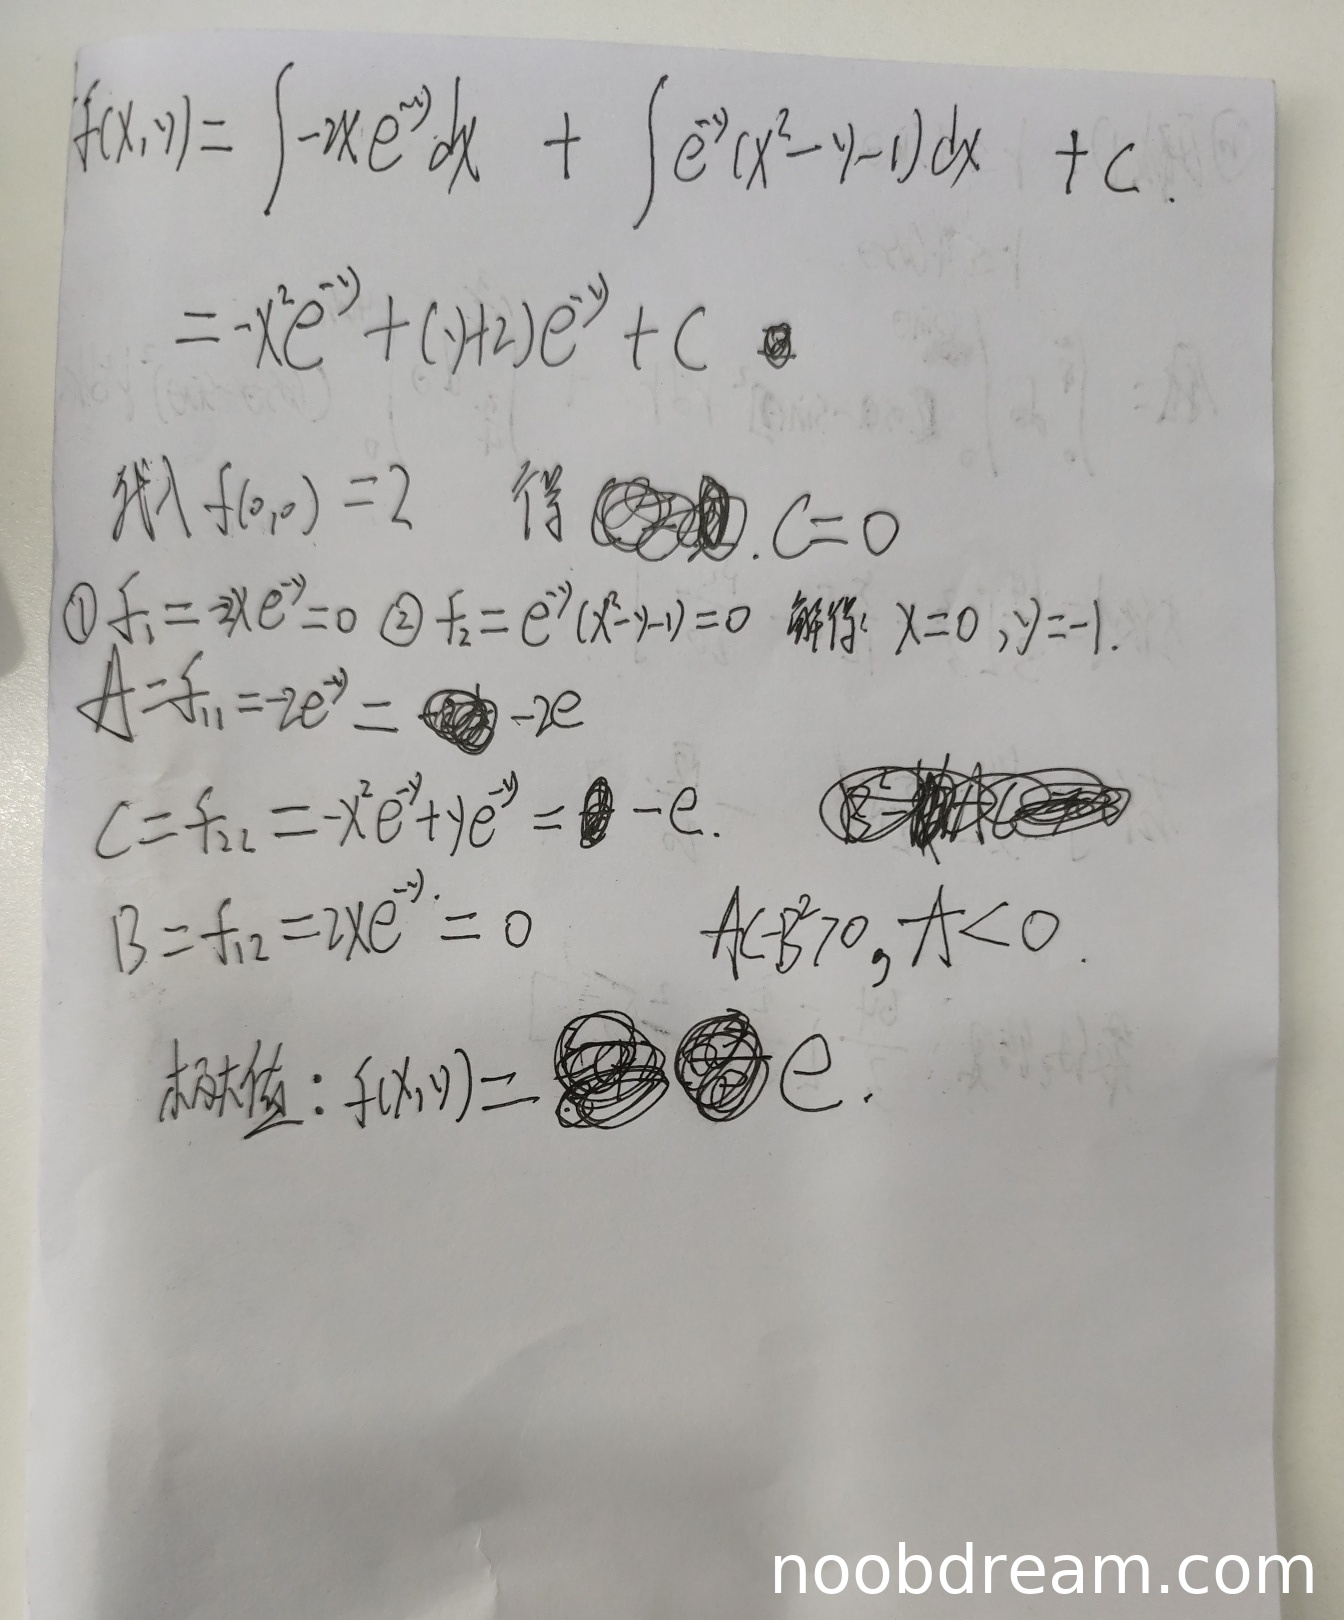 f(x,y) = ∫ -2x e^{-y} dx + ∫ e^{-y}(x²-y-1) dx + C.
= -x² e^{-y} + (y+2) e^{-y} + C
代入 f(0,0) = 2 得 . C = 0
① f₁ = -2x e^{-y} = 0 ② f₂ = e^{-y}(x²-y-1) = 0 解得: x = 0, y = -1.
A = f₁₁ = -2e^{-y} = -2e
C = f₂₂ = -x² e^{-y} + y e^{-y} = -e.
B = f₁₂ = 2x e^{-y} = 0 AC-B²>0, A<0.
极大值: f(x,y) = e.
noobdream.com